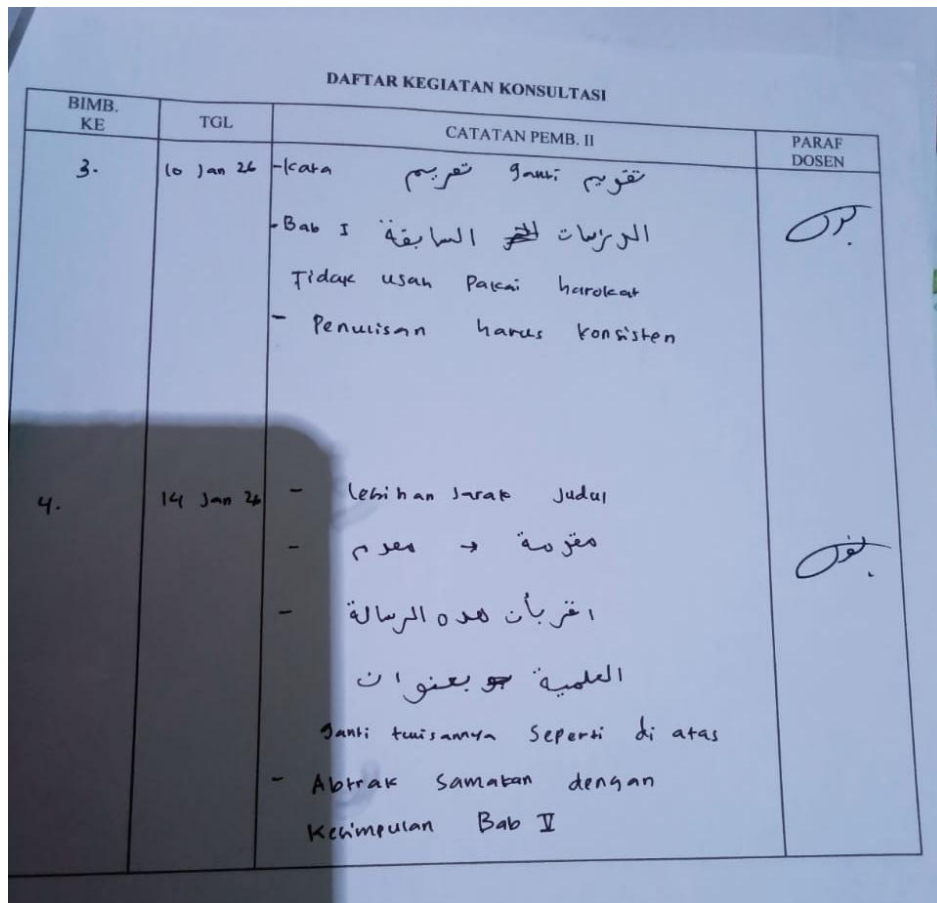 DAFTAR KEGIATAN KONSULTASI
BIMB. KE TGL CATATAN PEMB. II PARAF DOSEN
3. 10 Jan 26 - Kata تقويم ganti تقريم
- Bab I الدراسات السابقة
Tidak usah Pakai harokat
- Penulisan harus konsisten
4. 14 Jan 26 - Lebihan Jarak Judul
- مقدمة →
- اقر بأن هده الرسالة
العلمية بعنوان
ganti tulisannya seperti di atas
- Abtrak samakan dengan
Kesimpulan Bab V